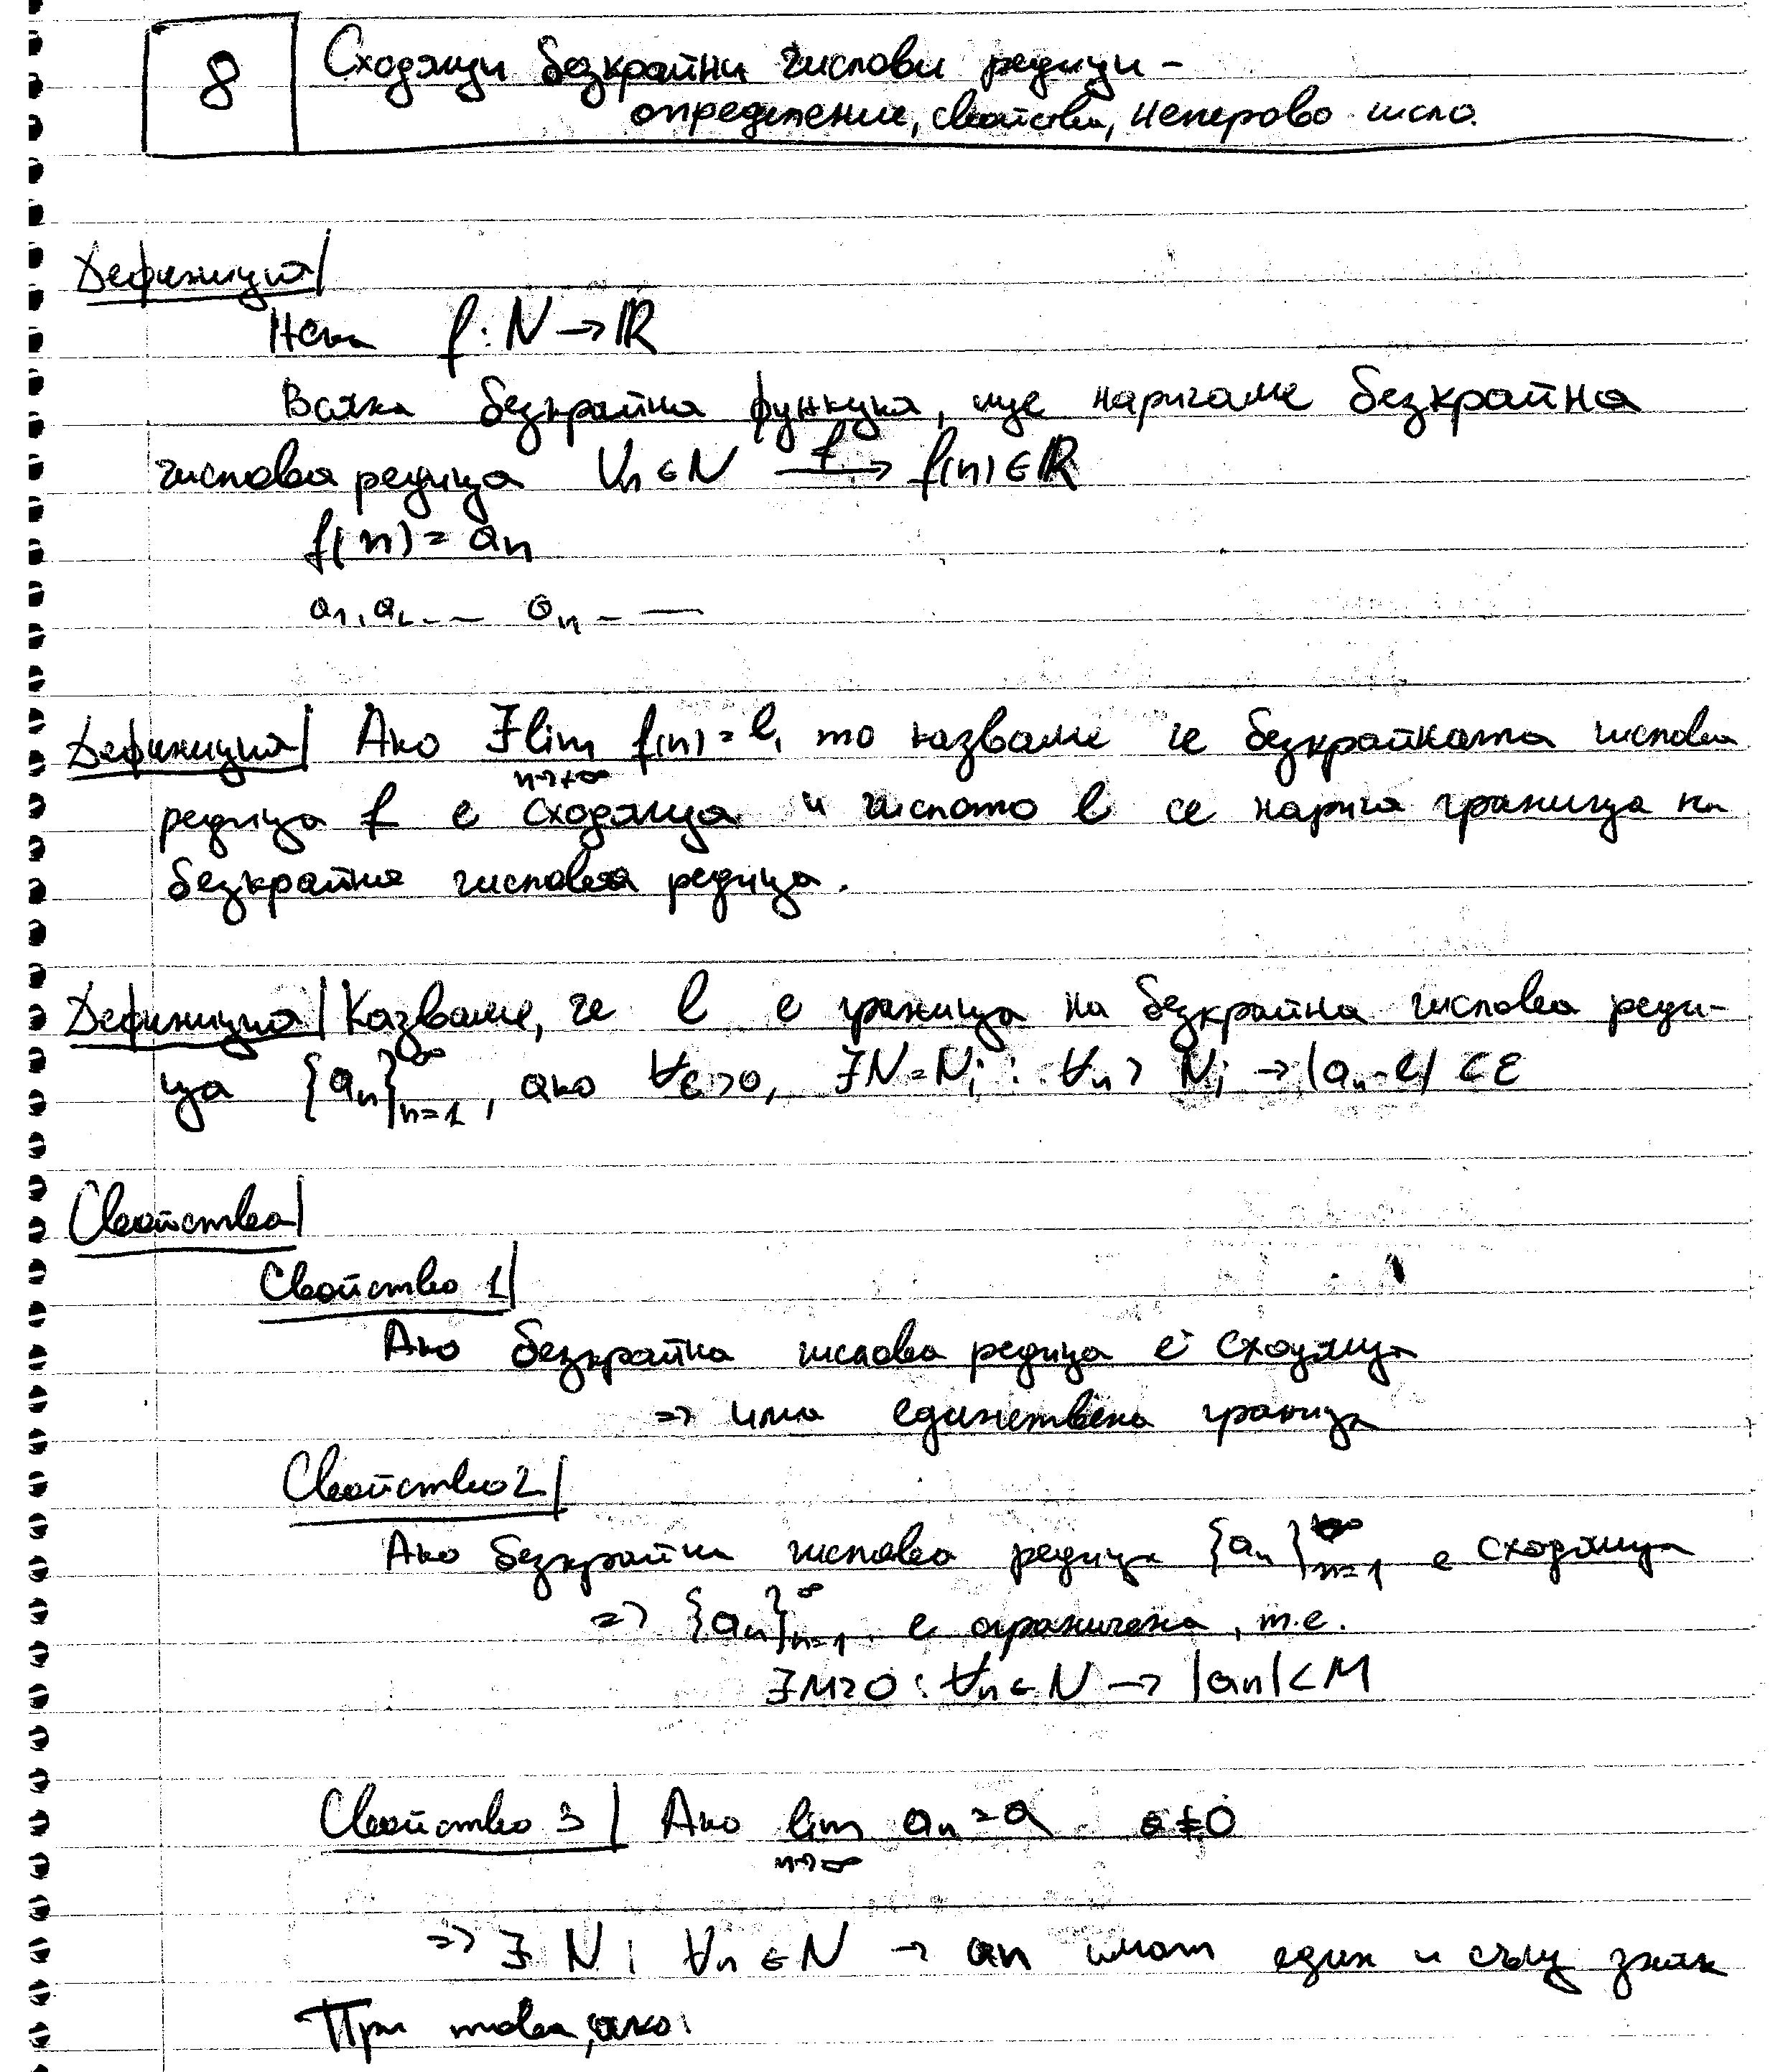 8
Сходящи безкрайни числови редици -
определение, свойства, неперово число.
Дефиниция/
Нека f: N → ℝ
Всяка безкрайна функция, ще наричаме безкрайна
числова редица ∀n ∈ N —f→ f(n) ∈ ℝ
f(n) = an
a1, a2, ... an ...
Дефиниция/ Ако ∃ lim n→+∞ f(n) = l, то казваме че безкрайната числова
редица f е сходяща и числото l се нарича граница на
безкрайна числова редица.
Дефиниция/ Казваме, че l е граница на безкрайна числова реди-
ца {an}∞n=1, ако ∀ε>0, ∃N=Ni : ∀n > Ni → |an - l| < ε
Свойства/
Свойство 1/
Ако безкрайна числова редица е сходяща
=> има единствена граница
Свойство 2/
Ако безкрайна числова редица {an}∞n=1 е сходяща
=> {an}∞n=1 е ограничена, т.е.
∃M>0 : ∀n ∈ N → |an| < M
Свойство 3/ Ако lim n→∞ an = a a ≠ 0
=> ∃ N : ∀n ∈ N → an имат един и същ знак
При това, ако: